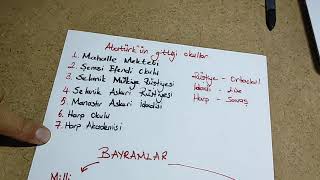 Atatürk'ün gittiği okullar
1. Mahalle Mektebi
2. Şemsi Efendi Okulu
3. Selanik Mülkiye Rüştiyesi
4. Selanik Askeri Rüştiyesi
5. Manastır Askeri İdadisi
6. Harp Okulu
7. Harp Akademisi
Rüştiye - Ortaokul
İdadi - Lise
Harp - Savaş
BAYRAMLAR
Milli